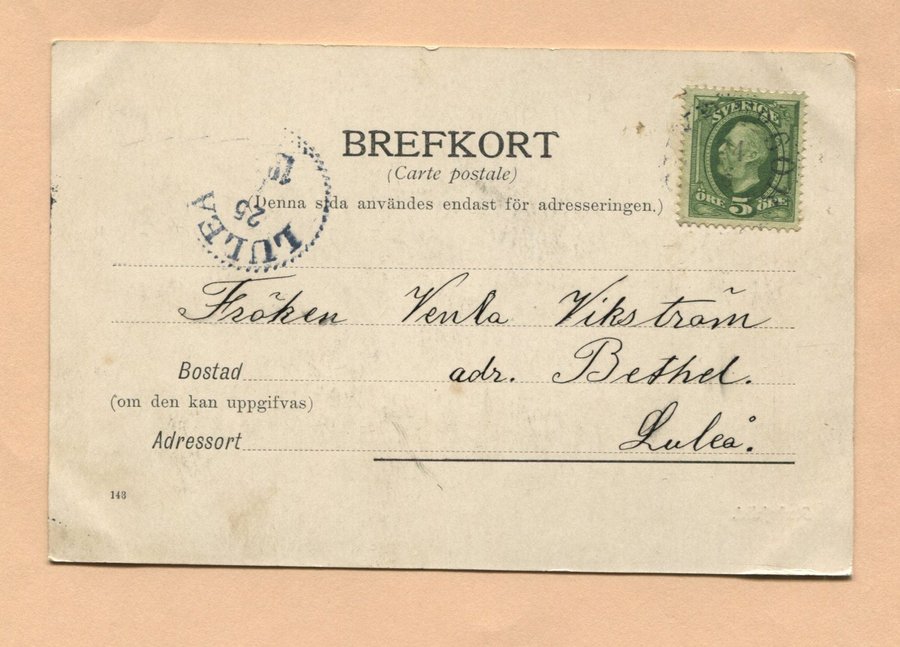 BREFKORT
(Carte postale)
(Denna sida användes endast för adresseringen.)
SVERIGE
ÖRE 5 ÖRE
LULEA
25
Fröken Venla Vikström
Bostad adr. Bethel.
(om den kan uppgifvas)
Adressort Luleå.
143